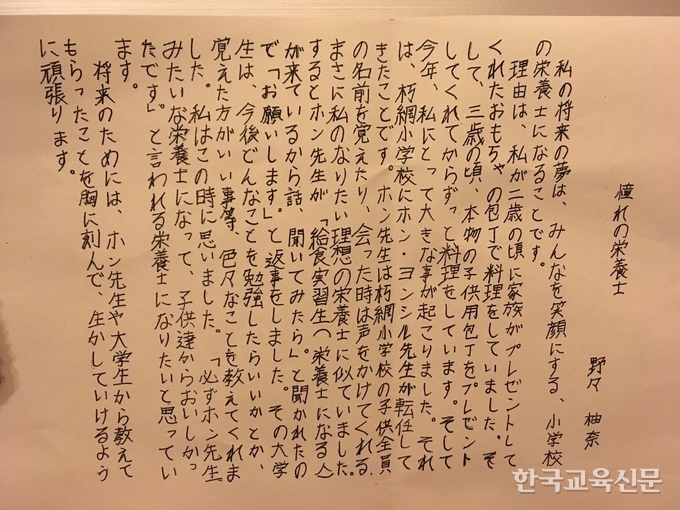 憧れの栄養士
野々 柚奈
私の将来の夢は、みんなを笑顔にする、小学校
の栄養士になることです。
理由は、私が二歳の頃に家族がプレゼントして
くれたおもちゃの包丁で料理をしていました。そ
して、三歳の頃、本物の子供用包丁をプレゼント
してくれてからずっと料理をしています。そして
今年、私にとって大きな事が起こりました。それ
は、朽網小学校にホン・ヨンシル先生が転任して
きたことです。ホン先生は朽網小学校の子供全員
の名前を覚えたり、会った時は声をかけてくれる、
まさに私のなりたい理想の栄養士に似ていました。
するとホン先生が、「給食実習生(栄養士になる人)
が来ているから話、聞いてみたら。」と聞かれたの
で「お願いします。」と返事をしました。その大学
生は、今後どんなことを勉強したらいいかとか、
覚えた方がいい事等、色々なことを教えてくれま
した。私はこの時に思いました。「必ずホン先生
みたいな栄養士になって、子供達からおいしかっ
たです。」と言われる栄養士になりたいと思ってい
ます。
将来のためには、ホン先生や大学生から教えて
もらったことを胸に刻んで、生かしていけるよう
に頑張ります。
한국교육신문